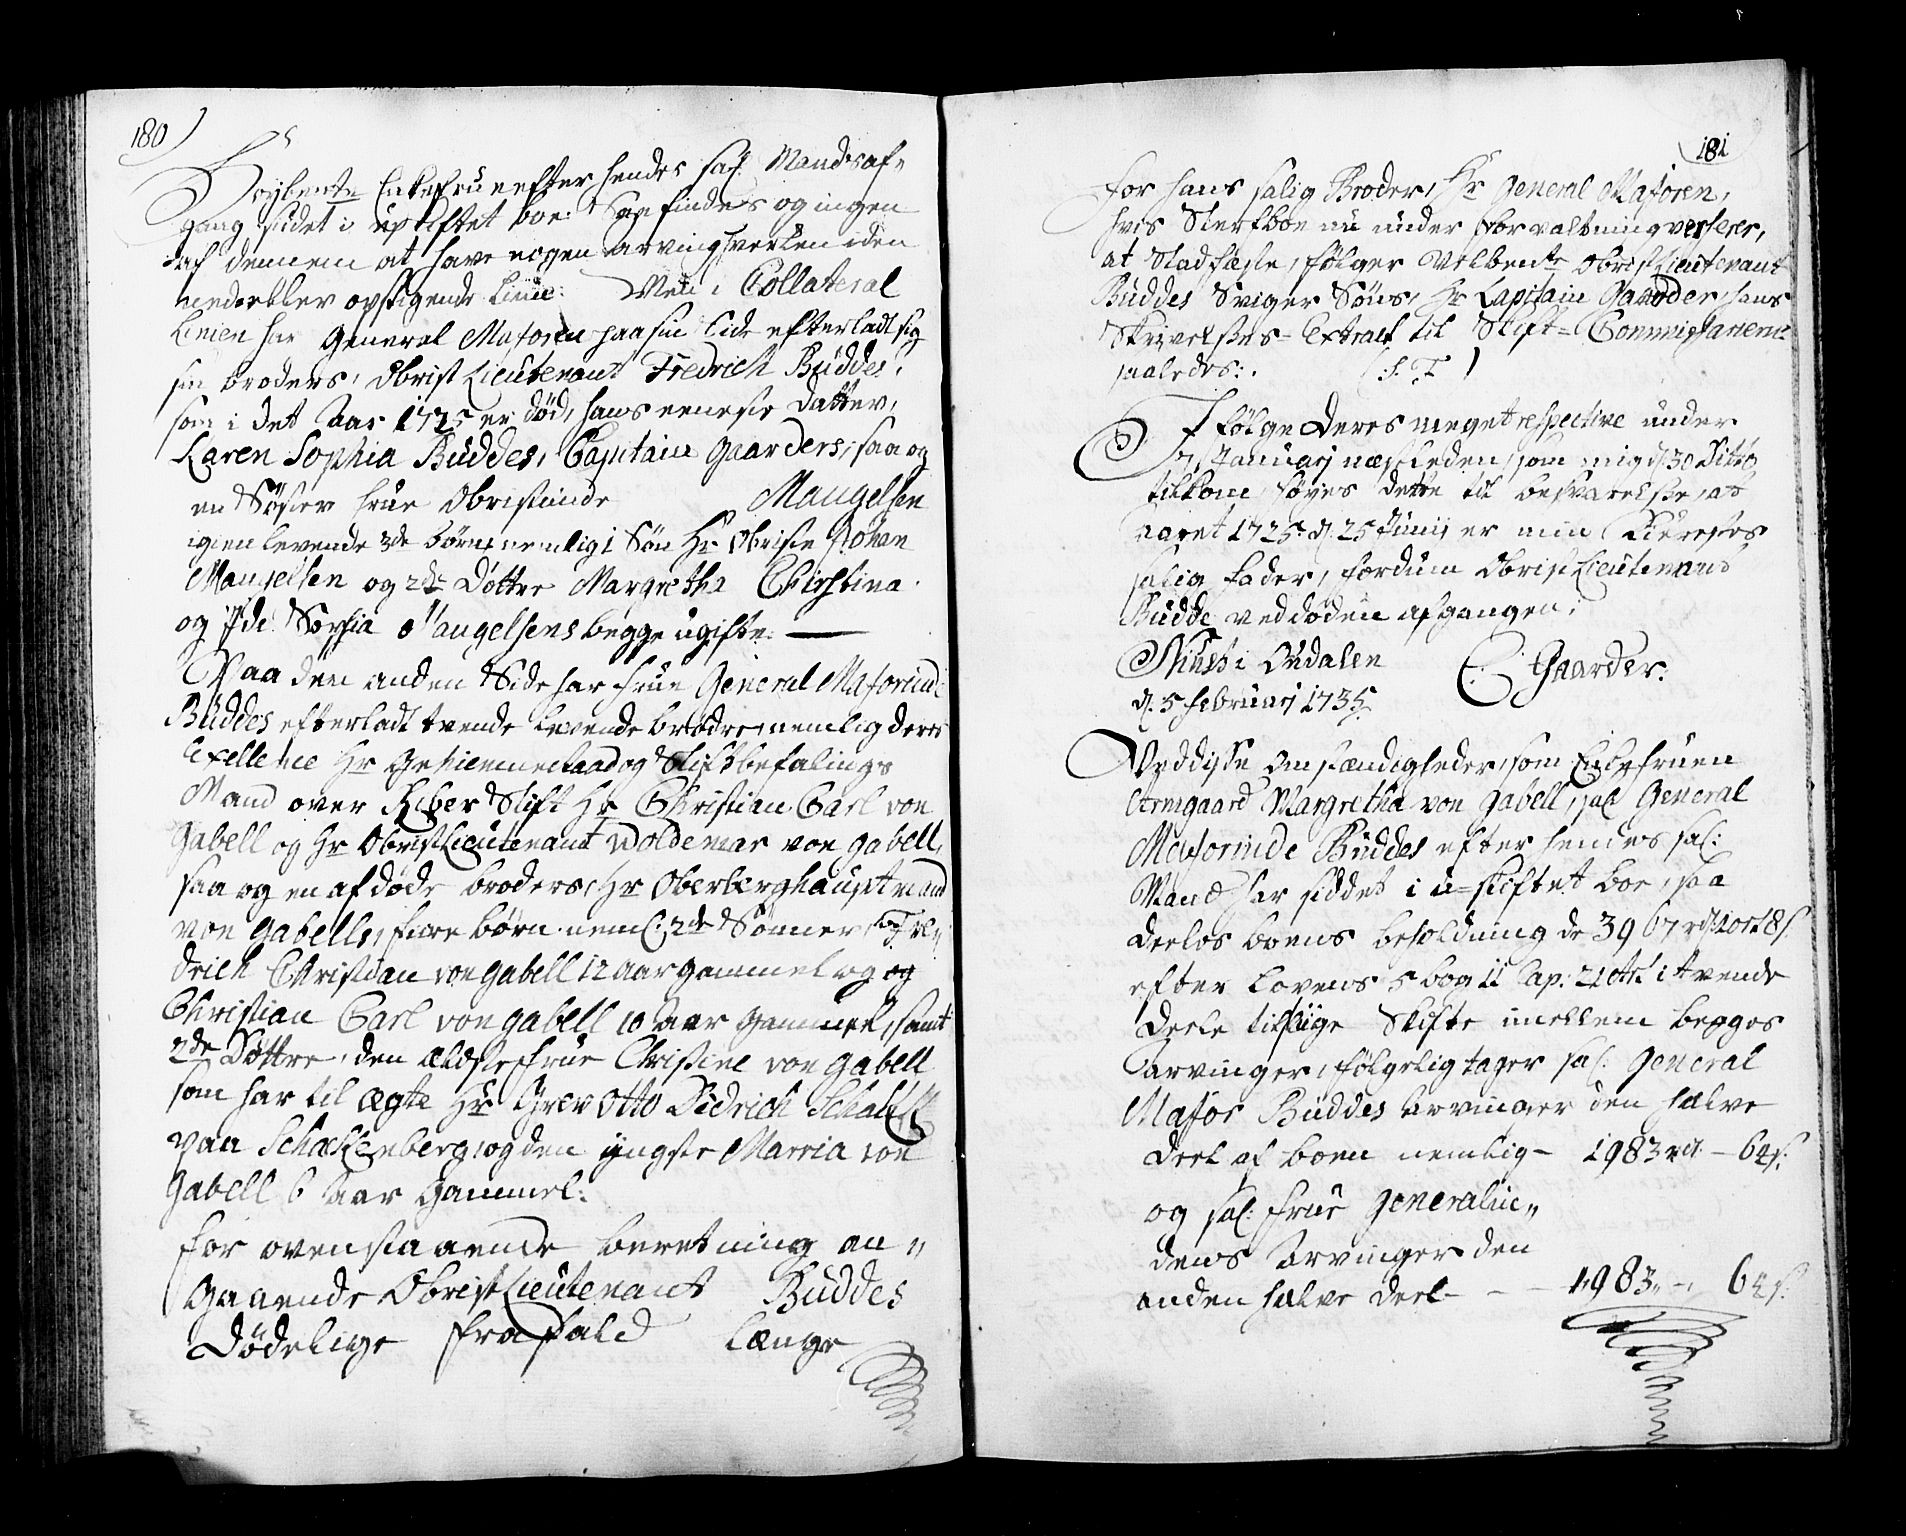 180)
Høybente Enkefrue efter hendes sal. Mands af„
gang sidet i uskiftet boe. Og findes og ingen
af dennem at have nogen arving hverken i den
neder eller opstigende Linie: Men i Collateral
Linien har General Majoren paa sin Side efterladt sig
sin broders, Obrist Lieutenant Fredrich Büddes,
som i det Aar 1725 er død, hans eeneste Datter,
Karen Sophia Büddes, Capitain Gaarders, saa og
en Søster Frue Obristinde Mangelsen
igien levende 3de børn, nemlig 1 Søn Hr Obriste Johan
Mangelsen og 2de Døttre Margretha Christina
og Ide Sophia Mangelsens begge ugifte. —
Paa den anden Side har Frue General Majorinde
Büddes efterladt tvende levende brødre, nemlig deres
Exellence Hr Gehiemeraad og Stiftbefalings
Mand over Riber Stift Hr Christian Carl von
Gabell og Hr Obrist Lieutenant Woldemar von Gabell,
saa og en afdøde broders, Hr Oberberghauptmand
von Gabells, fiire børn neml. 2de Sønner, Fre„
drich Christian von Gabell 12 aar gammel og og
Christian Carl von Gabell 10 aar gammel, samt
2de Døttre, den ældste Frue Christine von Gabell
som har til ægte Hr Grev Otto Didrich Schack
van Schackenberg, og den yngste Marria von
Gabell 6 Aar Gammel.
For ovenstaaende beretning an„
gaaende Obrist Lieutenant Büddes
Dødelige frafald længe
181
for hans salig Broder, Hr General Majoren,
hvis Sterfboe nu under forvaltning verserer,
at Stadfæste, følger Velbente Obrist Lieutenant
Büddes Sviger Søns, Hr Capitain Gaarder, hans
Skrivelses-Extract til Skift-Commissarierne
saaledes: (S. T.)
I følge Deres meget respective under
7 Januarij næstleden, som mig d. 30 Ditto
tilkom, føyes dette til besvarelse, at
aaret 1725 d. 25 Junij er min Kierestes
salig Fader, fordum Obrist Lieutenant
Büdde ved døden afgangen.
i Oudalen C: Gaarder.
d. 5 Februarij 1735.
Ved disse Omstændigheder, som Enkefruen
Armgaard Margretha von Gabell, sal. General
Majorinde Büddes efter hendes sal:
Mand har siddet i u-skiftet boe, saa
deelos boens beholdning de 3967 rd. 1 ort 8 s.
efter Lovens 5 bog 2 Cap: 21 Art: i tvende
Deele tillige Skifte imellem begges
arvinger, følgelig tager sal. General
Major Büddes Arvinger den halve
Deel af boen nemlig - 1983 rd. - 64 s.
og sal. Frue Generalin„
dens Arvinger den
anden halve Deel - - - 1983 „ - 64 s.